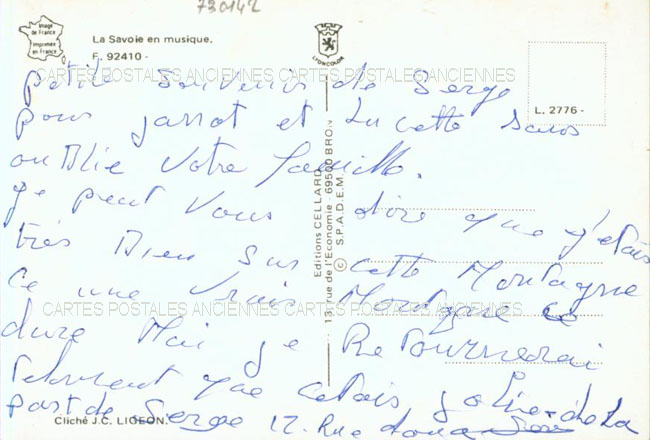 730142
Image de France
Imprimée en France
La Savoie en musique.
F. 92410 -
LYONCOLOR
CARTES POSTALES ANCIENNES CARTES POSTALES ANCIENNES
L. 2776 -
petit souvenir de Serge
pour jarrot et Lucette sans
oublie votre famille.
je peut vous dire que j'etais
très Bien sur cette Montagne
Ce une vrais Montagne
dure Mai je Retournerai
telement que cetais jolie de la
part de Serge 12. Rue
Editions CELLARD
13, rue de l'Economie - 69500 BRON
© S.P.A.D.E.M.
CARTES POSTALES ANCIENNES CARTES POSTALES ANCIENNES
Cliché J.C. LIGEON.